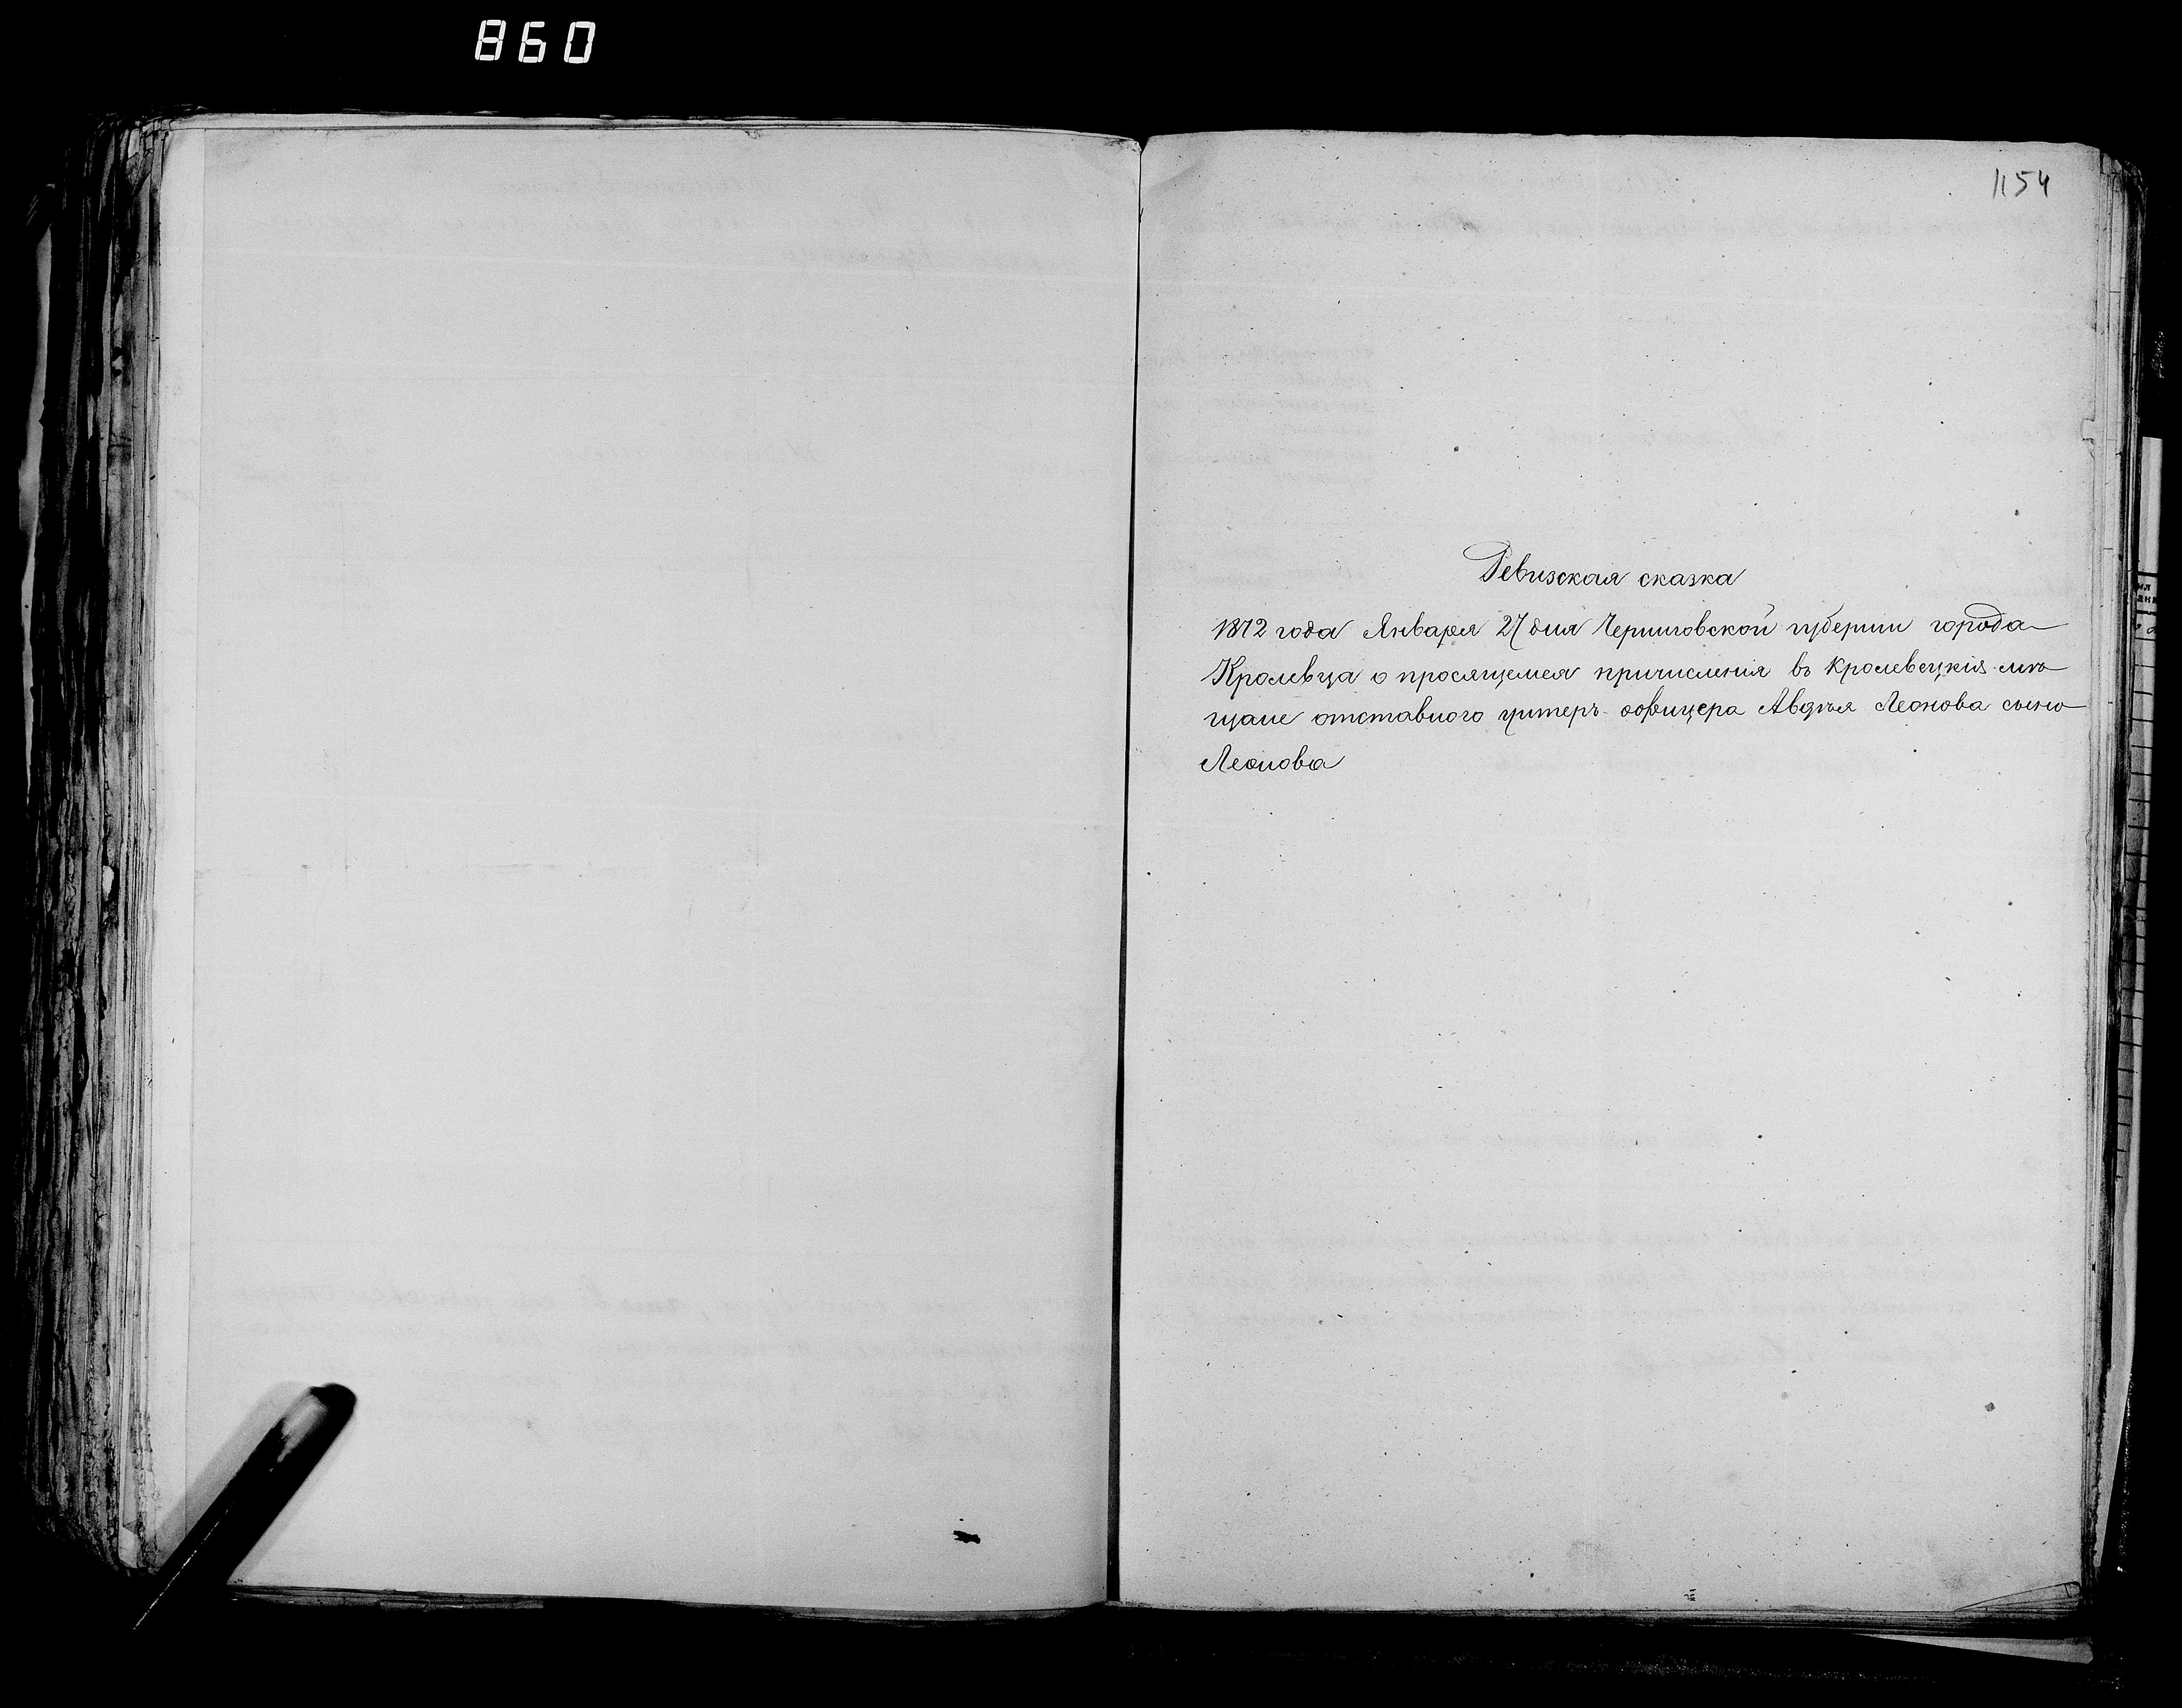 860
1154
Ревизская сказка
1872 года Января 27 дня Черниговской губернии города
Кролевца о просящемся причисления въ кролевецкія мѣ-
щане отставного унтеръ-офицера Авдѣя Леонова сына
Леонова